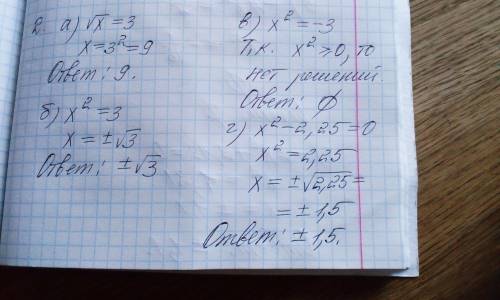 2. а) √x = 3
x = 3² = 9
Ответ: 9.
б) x² = 3
x = ±√3
Ответ: ±√3
в) x² = -3
Т.к. x² > 0, то
нет решений.
Ответ: ∅
г) x² - 2,25 = 0
x² = 2,25
x = ±√2,25 =
= ± 1,5
Ответ: ± 1,5.